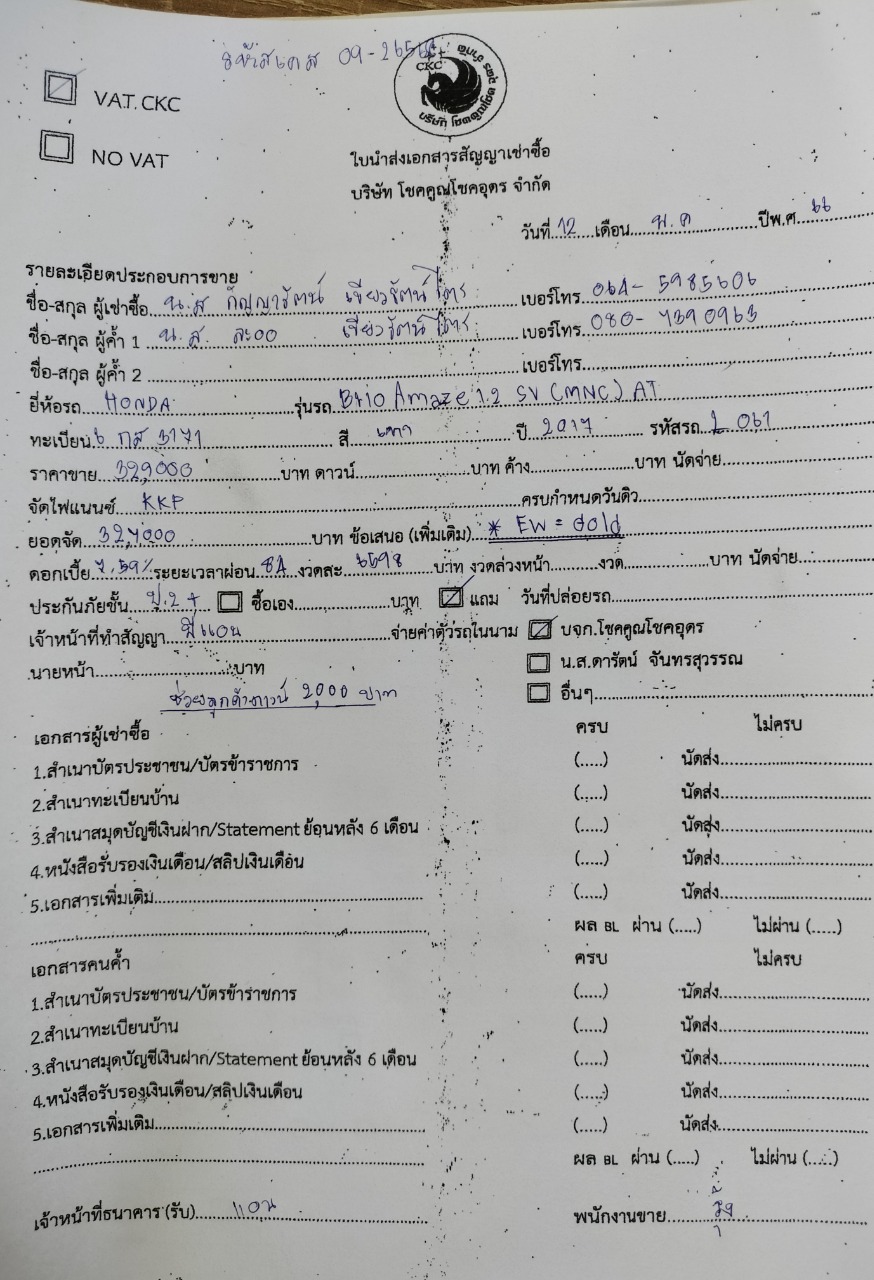 รหัสเคส 09-2656
CKC
บริษัท โชคคูณโชค อุดร จำกัด
VAT. CKC
NO VAT
ใบนำส่งเอกสารสัญญาเช่าซื้อ
บริษัท โชคคูณโชคอุดร จำกัด
วันที่ 12 เดือน พ.ค ปีพ.ศ. 66
รายละเอียดประกอบการขาย
ชื่อ-สกุล ผู้เช่าซื้อ น.ส กัญญารัตน์ เขียวรัตน์ไตร เบอร์โทร 064-5985606
ชื่อ-สกุล ผู้ค้ำ 1 น.ส. ละออ เขียวรัตน์ไตร เบอร์โทร 080-7390963
ชื่อ-สกุล ผู้ค้ำ 2 เบอร์โทร
ยี่ห้อรถ HONDA รุ่นรถ Brio Amaze 1.2 SV (MNC) AT
ทะเบียน 6 กส 3171 สี เทา ปี 2017 รหัสรถ L 061
ราคาขาย 329,000 บาท ดาวน์ บาท ค้าง บาท นัดจ่าย
จัดไฟแนนซ์ KKP ครบกำหนดวันดิว
ยอดจัด 327,000 บาท ข้อเสนอ (เพิ่มเติม) * EW = Gold
ดอกเบี้ย 7.59% ระยะเวลาผ่อน 84 งวดละ 6598 บาท งวดล่วงหน้า งวด บาท นัดจ่าย
ประกันภัยชั้น ป.2+ ซื้อเอง บาท แถม วันที่ปล่อยรถ
เจ้าหน้าที่ทำสัญญา พี่แอน จ่ายค่าตัวรถในนาม บจก.โชคคูณโชคอุดร
นายหน้า บาท น.ส.ดารัตน์ จันทรสุวรรณ
ช่วยลูกค้าดาวน์ 2,000 บาท อื่นๆ
เอกสารผู้เช่าซื้อ ครบ ไม่ครบ
1.สำเนาบัตรประชาชน/บัตรข้าราชการ (.....) นัดส่ง
2.สำเนาทะเบียนบ้าน (.....) นัดส่ง
3.สำเนาสมุดบัญชีเงินฝาก/Statement ย้อนหลัง 6 เดือน (.....) นัดส่ง
4.หนังสือรับรองเงินเดือน/สลิปเงินเดือน (.....) นัดส่ง
5.เอกสารเพิ่มเติม (.....) นัดส่ง
ผล BL ผ่าน (.....) ไม่ผ่าน (.....)
เอกสารคนค้ำ ครบ ไม่ครบ
1.สำเนาบัตรประชาชน/บัตรข้าราชการ (.....) นัดส่ง
2.สำเนาทะเบียนบ้าน (.....) นัดส่ง
3.สำเนาสมุดบัญชีเงินฝาก/Statement ย้อนหลัง 6 เดือน (.....) นัดส่ง
4.หนังสือรับรองเงินเดือน/สลิปเงินเดือน (.....) นัดส่ง
5.เอกสารเพิ่มเติม (.....) นัดส่ง
ผล BL ผ่าน (.....) ไม่ผ่าน (.....)
เจ้าหน้าที่ธนาคาร (รับ) แอน พนักงานขาย